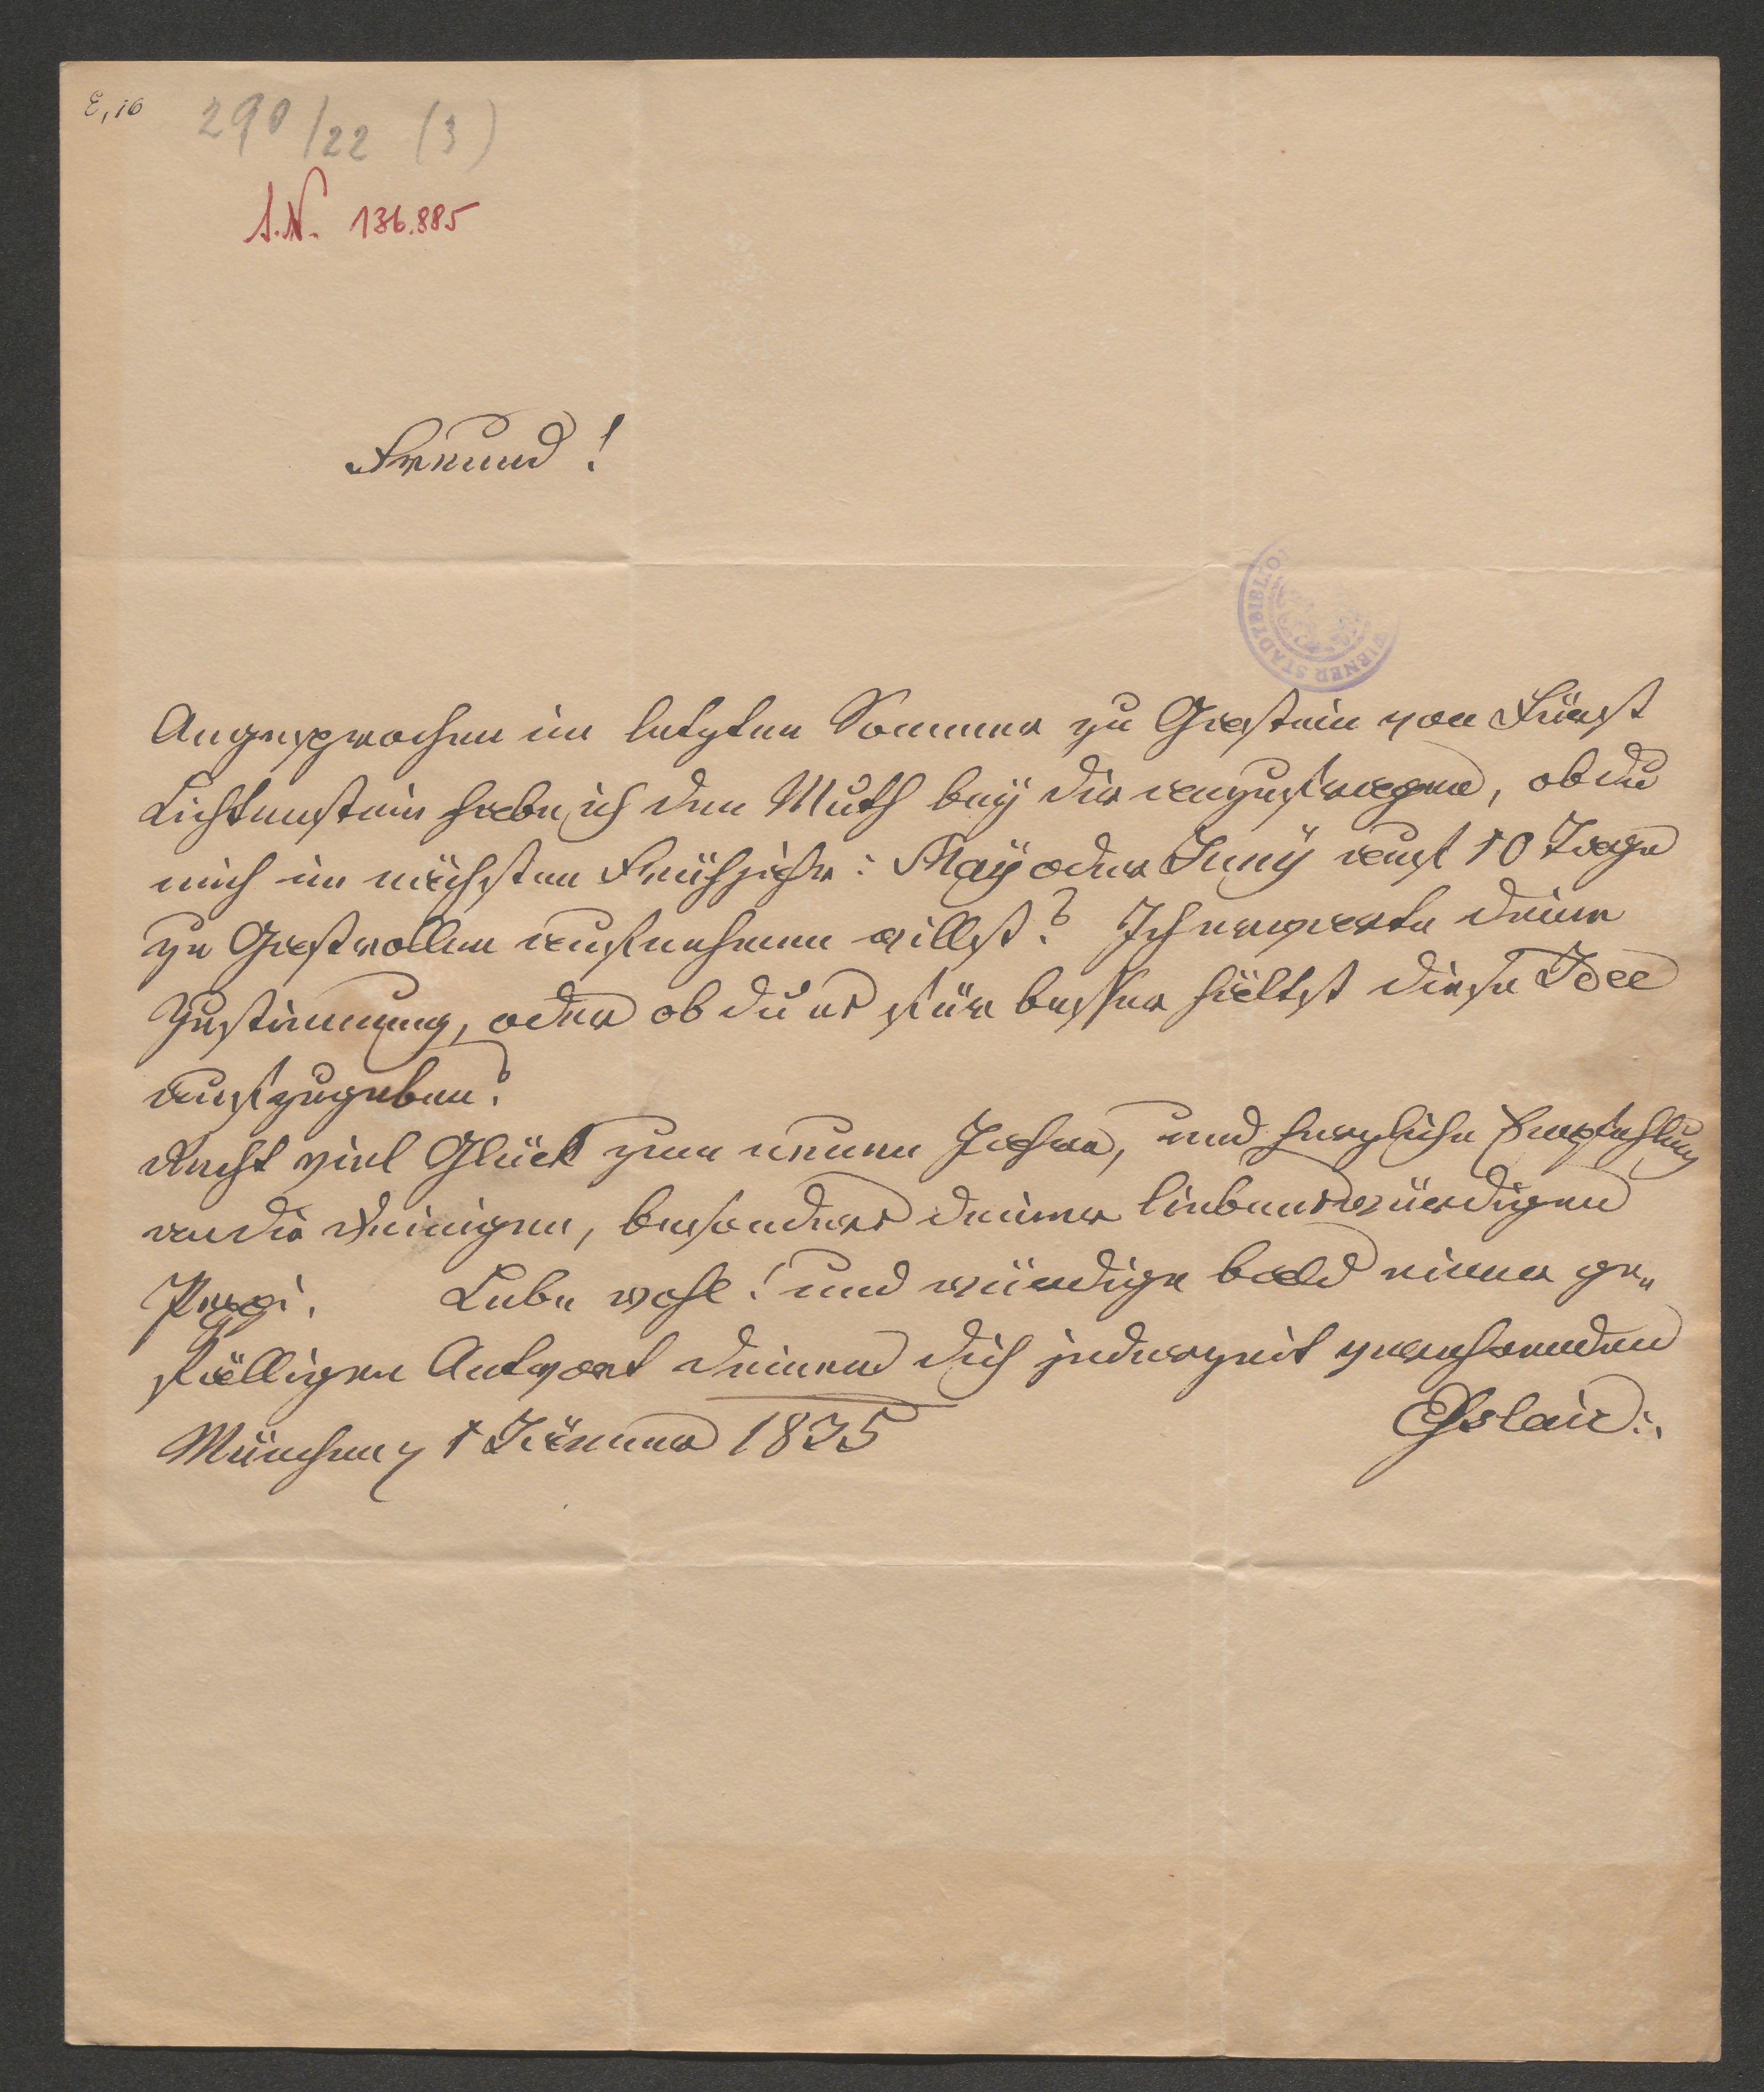 E, 16
290/22 (3)
I.N. 136.885
Freund!
WIENER STADTBIBLIO
Angesprochen im letzten Sommer zu Gastein von Fürst
Lichtenstein habe ich den Muth beÿ dir anzufragen, ob du
mich im nächsten Frühjahr: Maÿ oder Junÿ auf 10 Tage
zu Gastrollen aufnehmen willst? Ich erwarte deine
Zustimmung, oder ob du es für besser hältst diese Idee
aufzugeben?
Recht viel Glück zum neuen Jahre, und herzliche Empfehlung
an die Deinigen, besonders deiner liebenswürdigen
Pepi. Lebe wohl! und würdige bald einer ge„
fälligen Antwort deinen dich jederzeit verehrenden
München, 1 Jänner 1835
Esslair